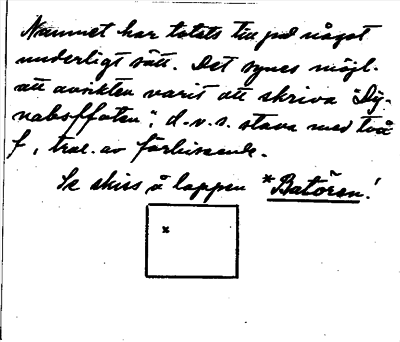 Namnet har totats till på något
underligt sätt. Det synes möjl.
att avsikten varit att skriva "Dy-
nabsoffaten", d.v.s. stava med två
f, trol. av förbiseende.
Se skiss å lappen *Batören!
x